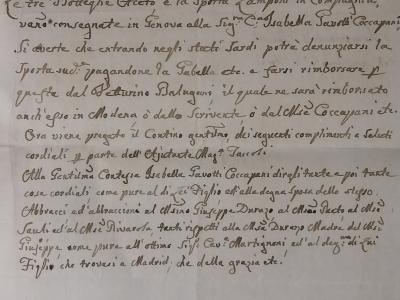 le tre Botteghe Aceto e la Sporta Lamponi in Compagnia,
vano consegnate in Genova alla Sig.ra C.sa Isabella Tavotti Coccapani
Si averte che entrando negli stati Sardi potrà denunziarsi la
Sporta sud.a pagandone la Gabella etc. a farsi rimborsare p
queste dal Vetturino Balugani il quale ne sarà rimborsato
anch'esso in Modena ò dallo Scrivente ò dal M.se Coccapani etc.
Ora viene pregato il Contino gentilmo dei seguenti complimenti e Saluti
cordiali p parte dell'Ajutante Mag.e Jaccoli.
Alla Gentilma Contessa Isabella Tavotti Coccapani dirgli tante e poi tante
cose cordiali come pure al di Lei Figlio ed alla degna Sposa dello stesso.
Abbracci ad'abbraccioni al M.se Giuseppe Durazo al al M.se
Sauli ed al M.se Rivarola, tanti rispetti alla M.sa Durazo Madre del M.se
Giuseppe come pure all'ottimo Sig.r Cav.e Martignoni ed al deg.mo di Lui
Figlio che trovasi a Madrid, che della grazia etc.